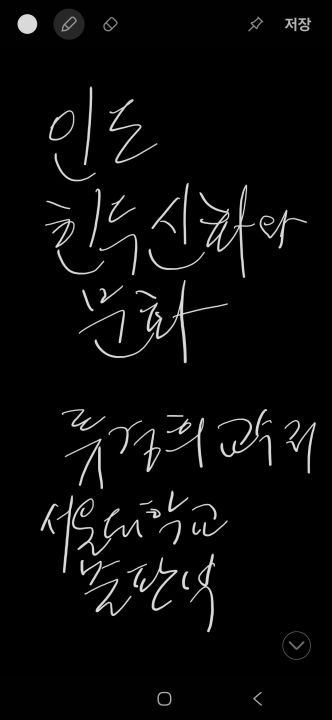 저장
인도
힌두신화와
문화
류경희 교수
서울대학교
출판부